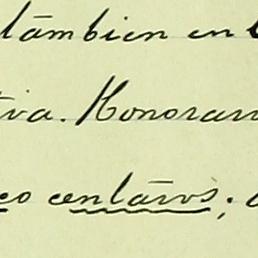 tāmbien en
tiva. Honorar
co centāvos;